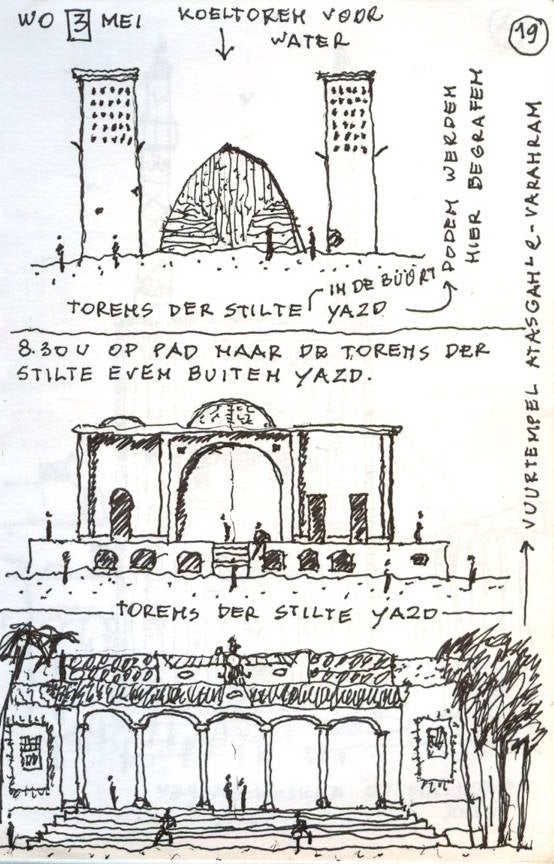 WO 3 MEI
KOELTOREN VOOR
WATER
19
DODEN WERDEN
HIER BEGRAFEN
TORENS DER STILTE IN DE BÜÜRT YAZD
8.30 U OP PAD NAAR DE TORENS DER
STILTE EVEN BUITEN YAZD.
TORENS DER STILTE YAZD
VUURTEMPEL ATASGAH-E-VARAHRAM